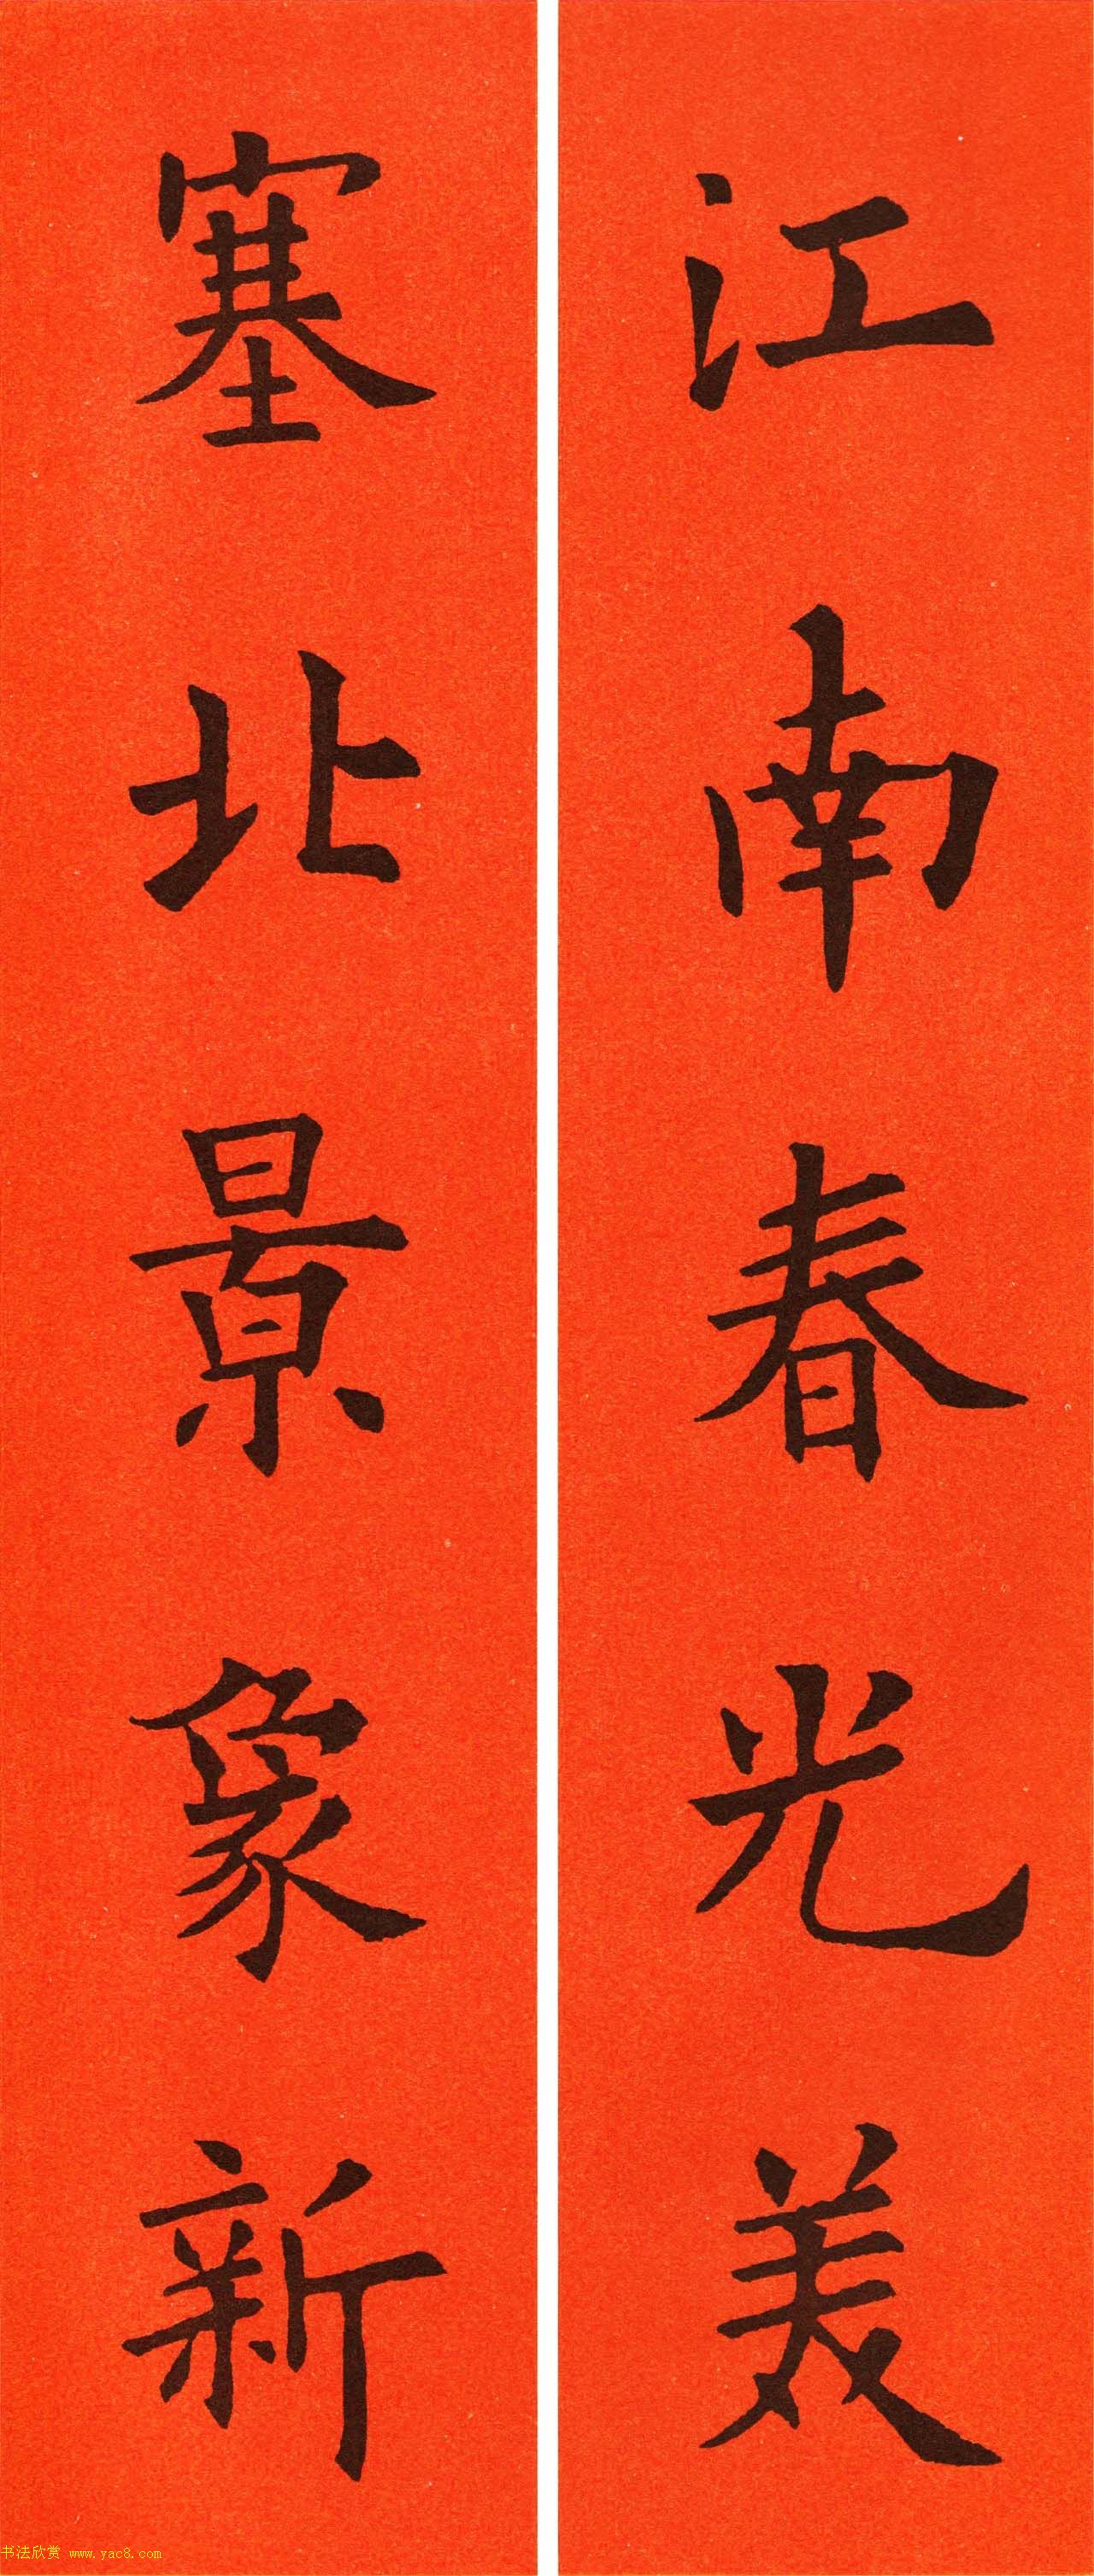 江南春光美
塞北景象新
书法欣赏 www.yac8.com